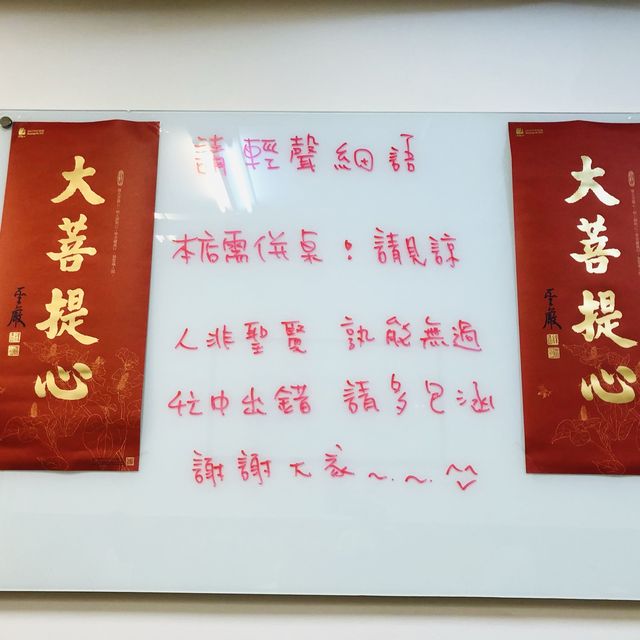 大菩提心
聖嚴
請輕聲細語
本店需併桌！請見諒
人非聖賢 孰能無過
忙中出錯 請多包涵
謝謝大家～.～.^^
大菩提心
聖嚴